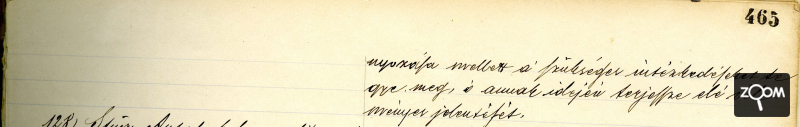 465
nyozása mellett a szükséges intézkedéseket te
gye meg, s annak idején terjessze elé
ményes jelentését.
128,
ZOOM